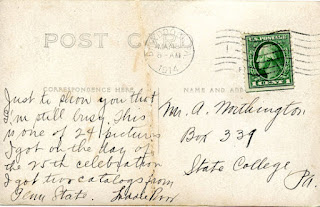 POST CARD
MAY
8-AM
1914
U.S. POSTAGE
1 CENT 1
CORRESPONDENCE HERE
NAME AND ADDRESS
Just to show you that
I'm still busy. This
is one of 24 pictures
I got on the day of
the 25th celebration
I got two catalogs from
Penn State.
Mr. A. Worthington
Box 339
State College
Pa.